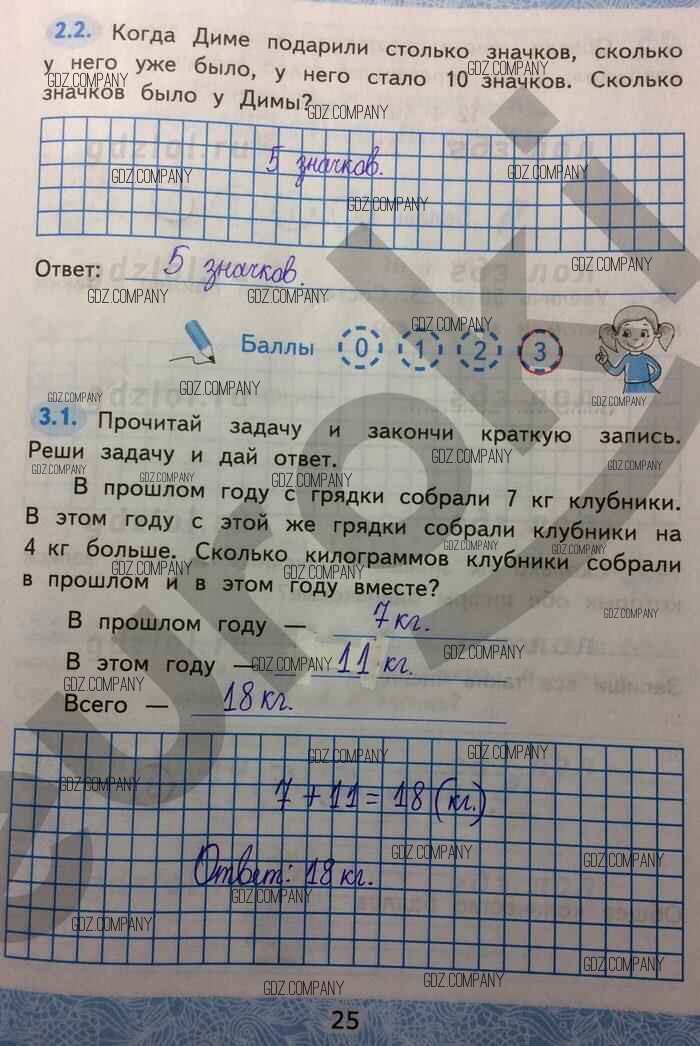 2.2. Когда Диме подарили столько значков, сколько
у него уже было, у него стало 10 значков. Сколько
значков было у Димы?
5 значков.
Ответ: 5 значков.
Баллы 0 1 2 3
3.1. Прочитай задачу и закончи краткую запись.
Реши задачу и дай ответ.
В прошлом году с грядки собрали 7 кг клубники.
В этом году с этой же грядки собрали клубники на
4 кг больше. Сколько килограммов клубники собрали
в прошлом и в этом году вместе?
В прошлом году — 7 кг.
В этом году — 11 кг.
Всего — 18 кг.
7 + 11 = 18 (кг.)
Ответ: 18 кг.
25
GDZ.COMPANY
euroki